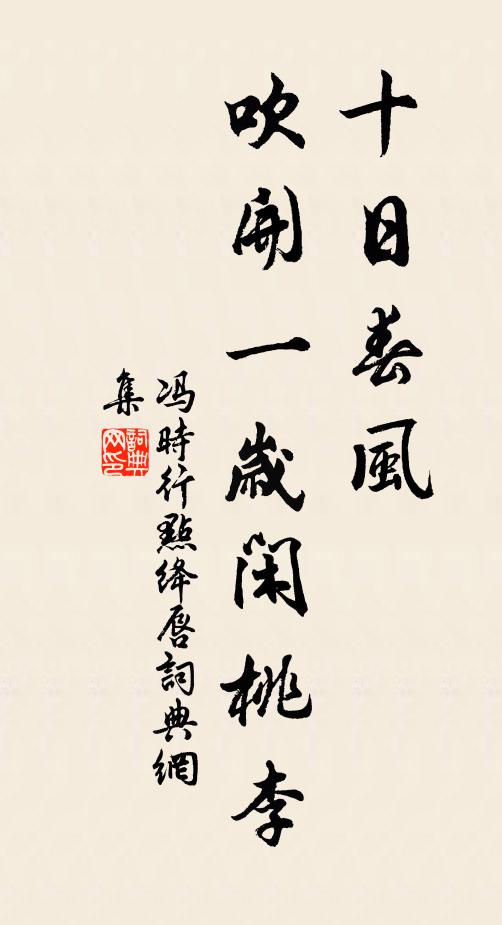 十日春風
吹開一歲閑桃李
冯時行點绛唇詞典網
集
詞典
网印